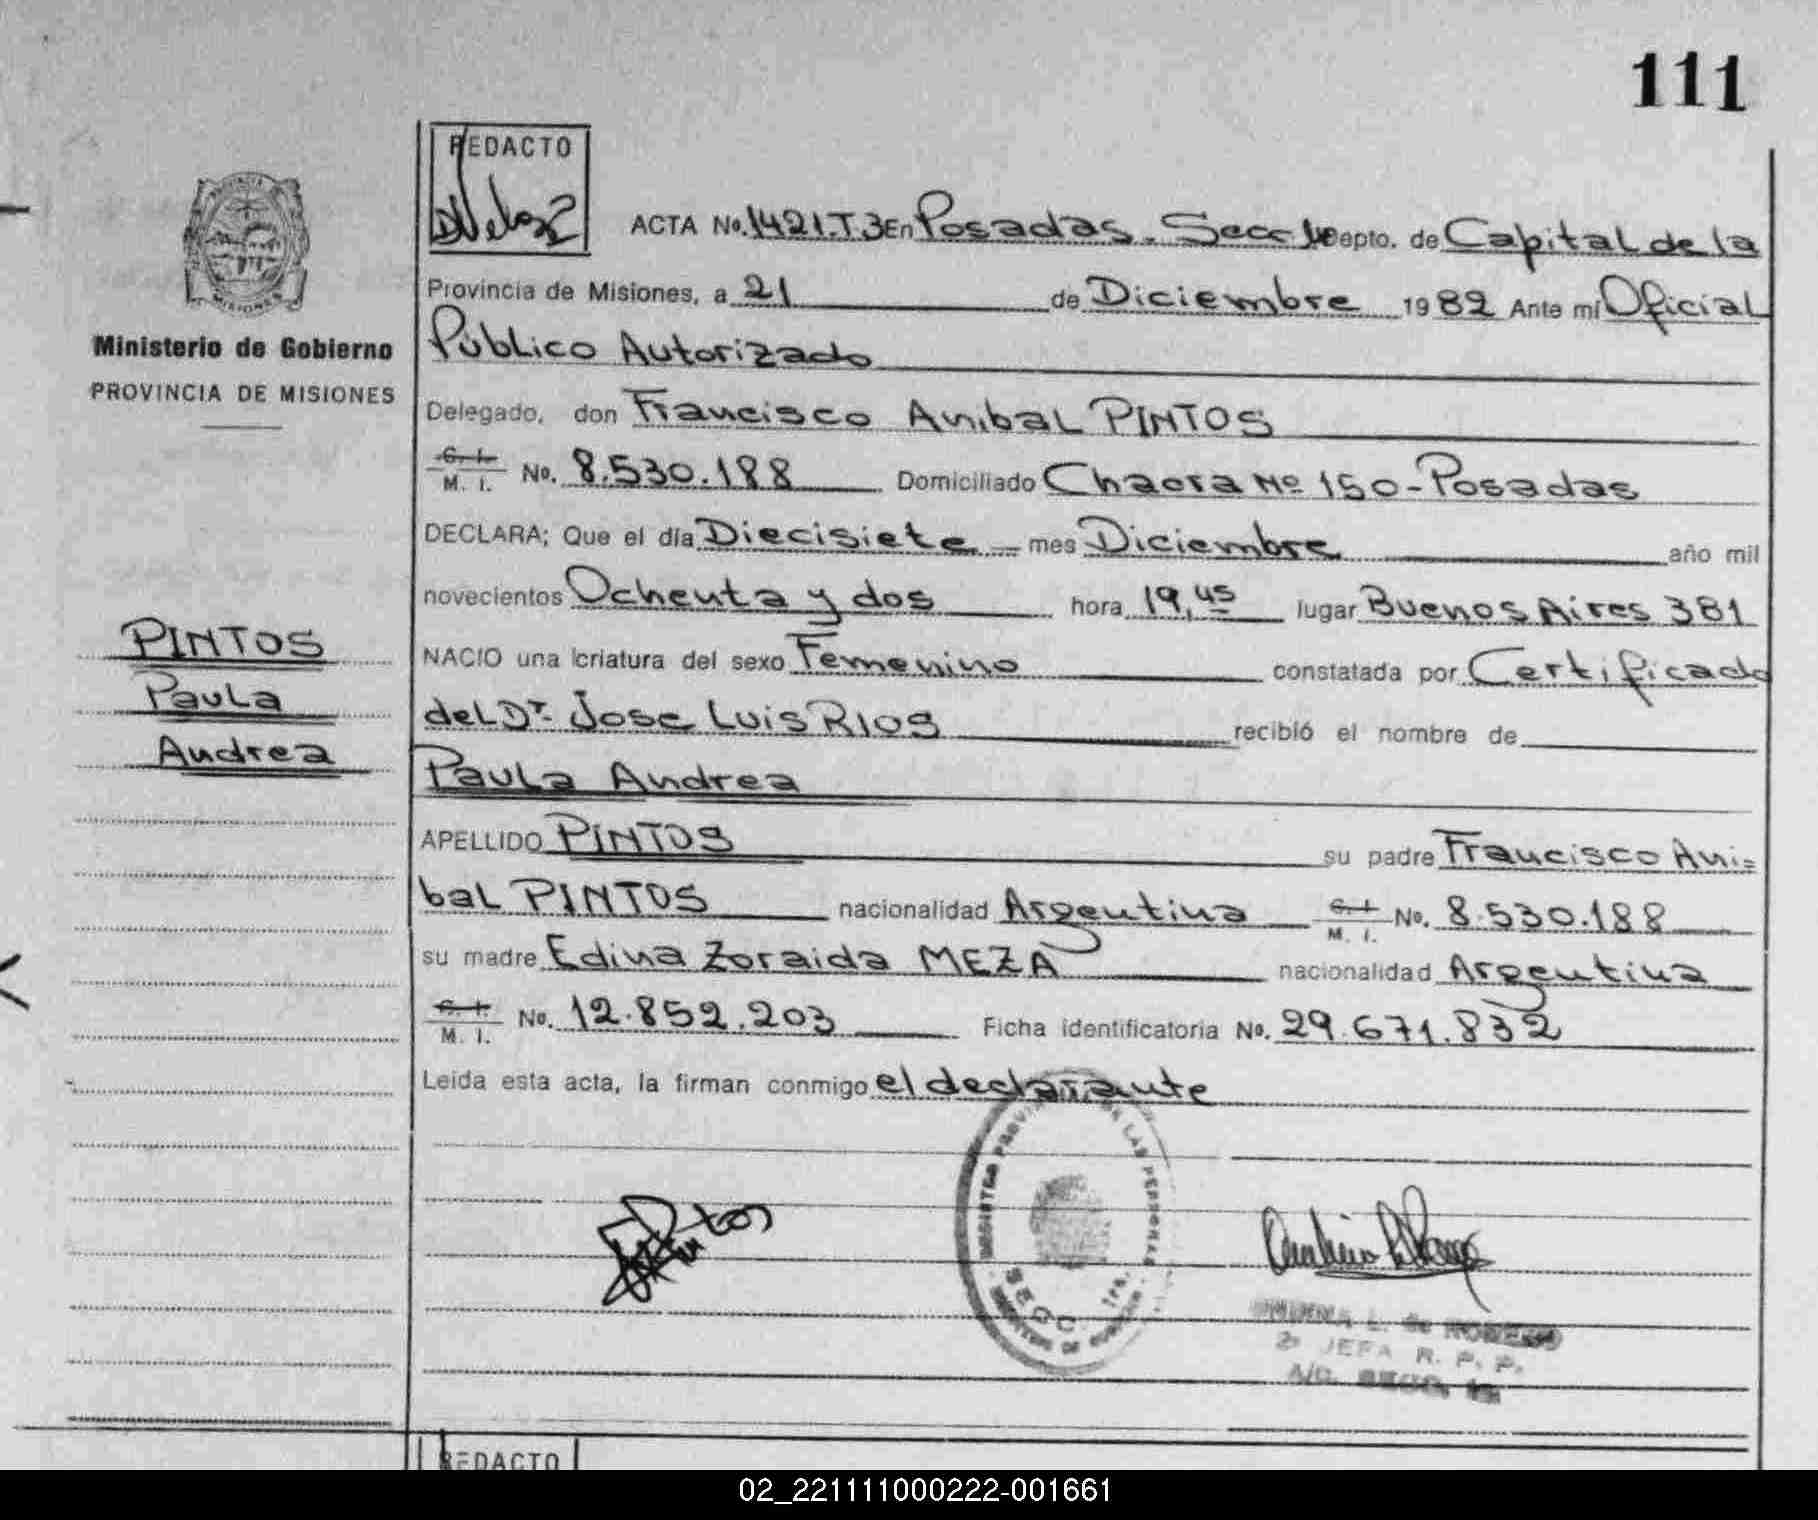 111
REDACTO
ACTA No. 1421.T.3 En Posadas. Secc 1º Depto. de Capital de la
Provincia de Misiones, a 21 de Diciembre 1982 Ante mí Oficial
Público Autorizado
Ministerio de Gobierno
PROVINCIA DE MISIONES
Delegado, don Francisco Anibal PINTOS
C. I.
M. I. No. 8.530.188 Domiciliado Chacra Nº 150-Posadas
DECLARA; Que el día Diecisiete mes Diciembre año mil
novecientos Ochenta y dos hora 19,45 lugar Buenos Aires 381
NACIO una criatura del sexo Femenino constatada por Certificado
del Dr. Jose Luis RIOS recibió el nombre de
Paula Andrea
PINTOS
Paula
Andrea
APELLIDO PINTOS su padre Francisco Ani=
bal PINTOS nacionalidad Argentina C. I. M. I. No. 8.530.188
su madre Edina Zoraida MEZA nacionalidad Argentina
C. I.
M. I. No. 12.852.203 Ficha identificatoria No. 29.671.832
Leída esta acta, la firman conmigo el declarante
LAS PERSONAS
SECC. 1ra.
L. de
2º JEFA R. P. P.
A/C. SECC. 1ª
REDACTO
02_221111000222-001661